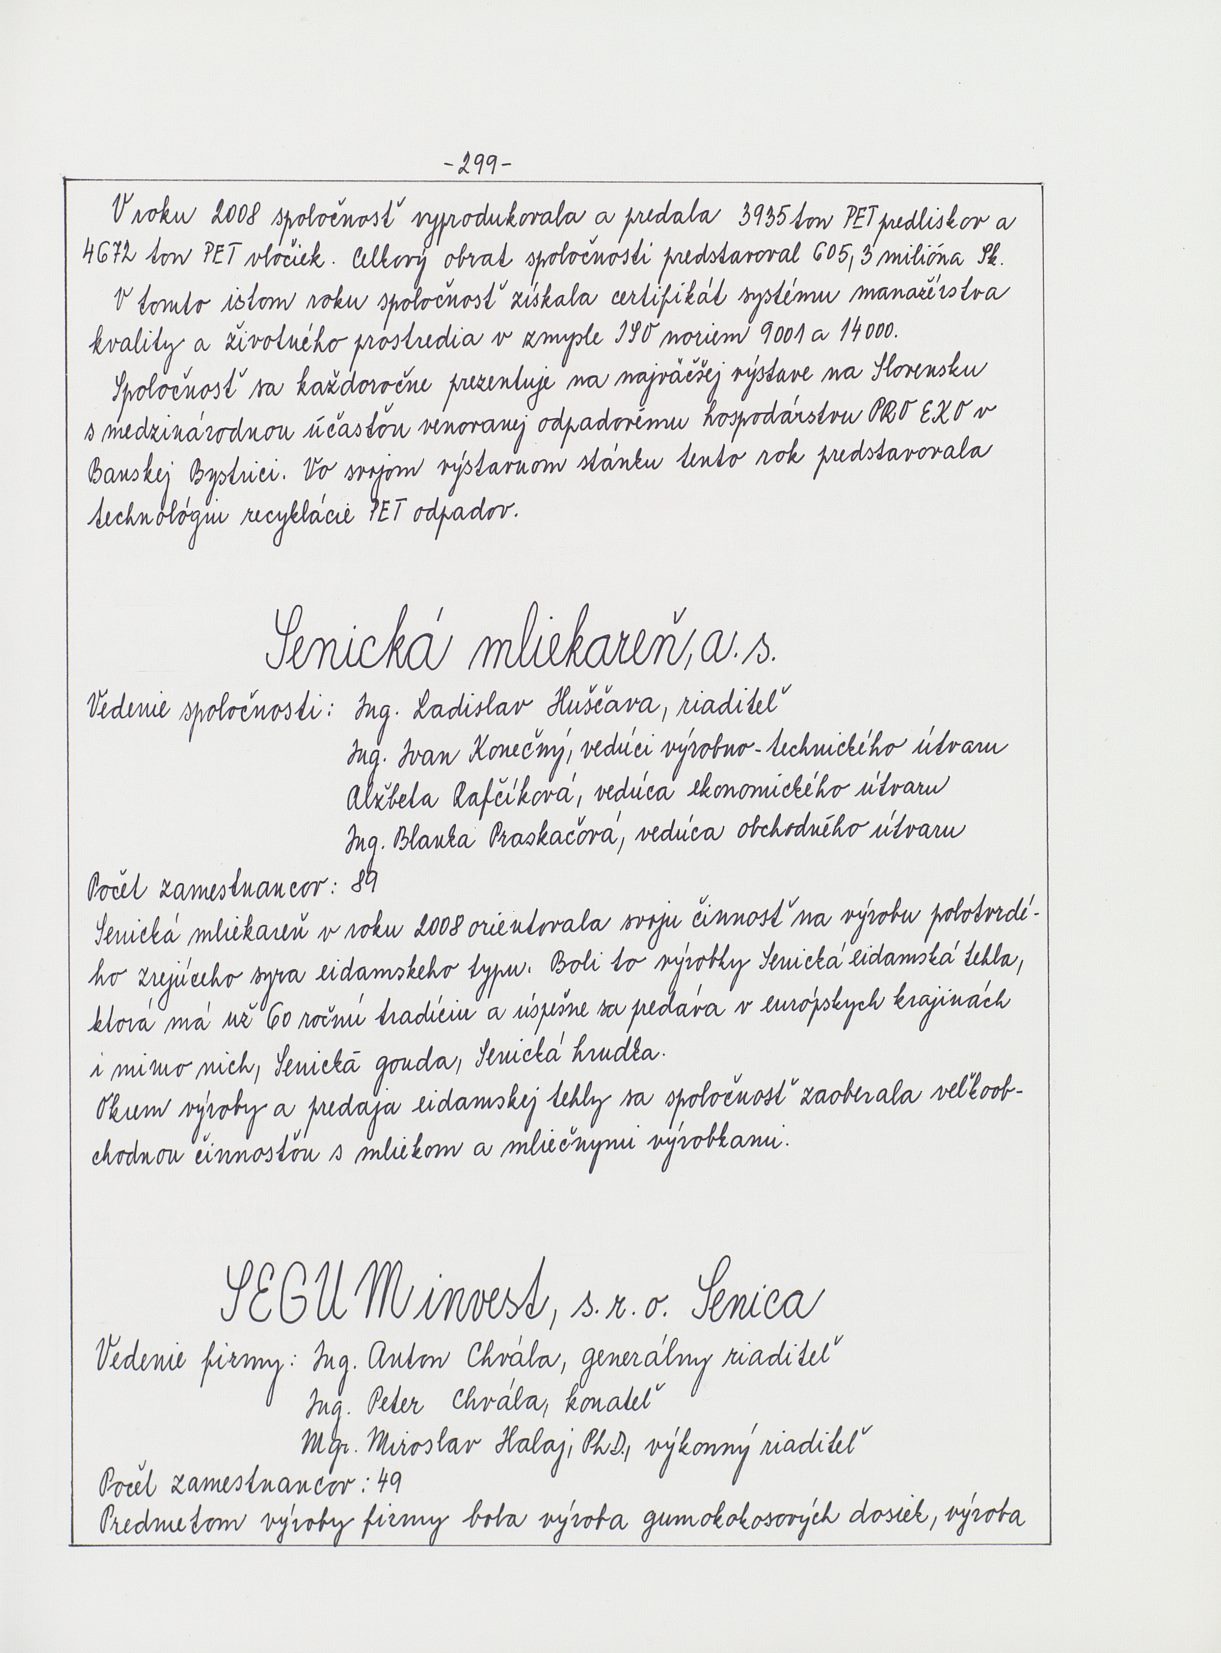 -299-
V roku 2008 spoločnosť vyprodukovala a predala 3935 ton PET predliskov a
4672 ton PET vločiek. Celkový obrat spoločnosti predstavoval 605,3 milióna Sk.
V tomto istom roku spoločnosť získala certifikát systému manažérstva
kvality a životného prostredia v zmysle ISO noriem 9001 a 14000.
Spoločnosť sa každoročne prezentuje na najväčšej výstave na Slovensku
s medzinárodnou účasťou venovanej odpadovému hospodárstvu PRO EKO v
Banskej Bystrici. Vo svojom výstavnom stánku tento rok predstavovala
technológiu recyklácie PET odpadov.
Senická mliekareň, a. s.
Vedenie spoločnosti: Ing. Ladislav Huščava, riaditeľ
Ing. Ivan Konečný, vedúci výrobno-technického útvaru
Alžbeta Rafčíková, vedúca ekonomického útvaru
Ing. Blanka Praskačová, vedúca obchodného útvaru
Počet zamestnancov: 89
Senická mliekareň v roku 2008 orientovala svoju činnosť na výrobu polotvrdé-
ho zrejúceho syra eidamskeho typu. Boli to výrobky Senická eidamská tehla,
ktorá má už 60 ročnú tradíciu a úspešne sa predáva v európskych krajinách
i mimo nich, Senická gouda, Senická hrudka.
Okrem výroby a predaja eidamskej tehly sa spoločnosť zaoberala veľkoob-
chodnou činnosťou s mliekom a mliečnymi výrobkami.
SEGUM invest, s. r. o. Senica
Vedenie firmy: Ing. Anton Chvála, generálny riaditeľ
Ing. Peter Chvála, konateľ
Mgr. Miroslav Halaj, PhD., výkonný riaditeľ
Počet zamestnancov: 49
Predmetom výroby firmy bola výroba gumokokosových dosiek, výroba